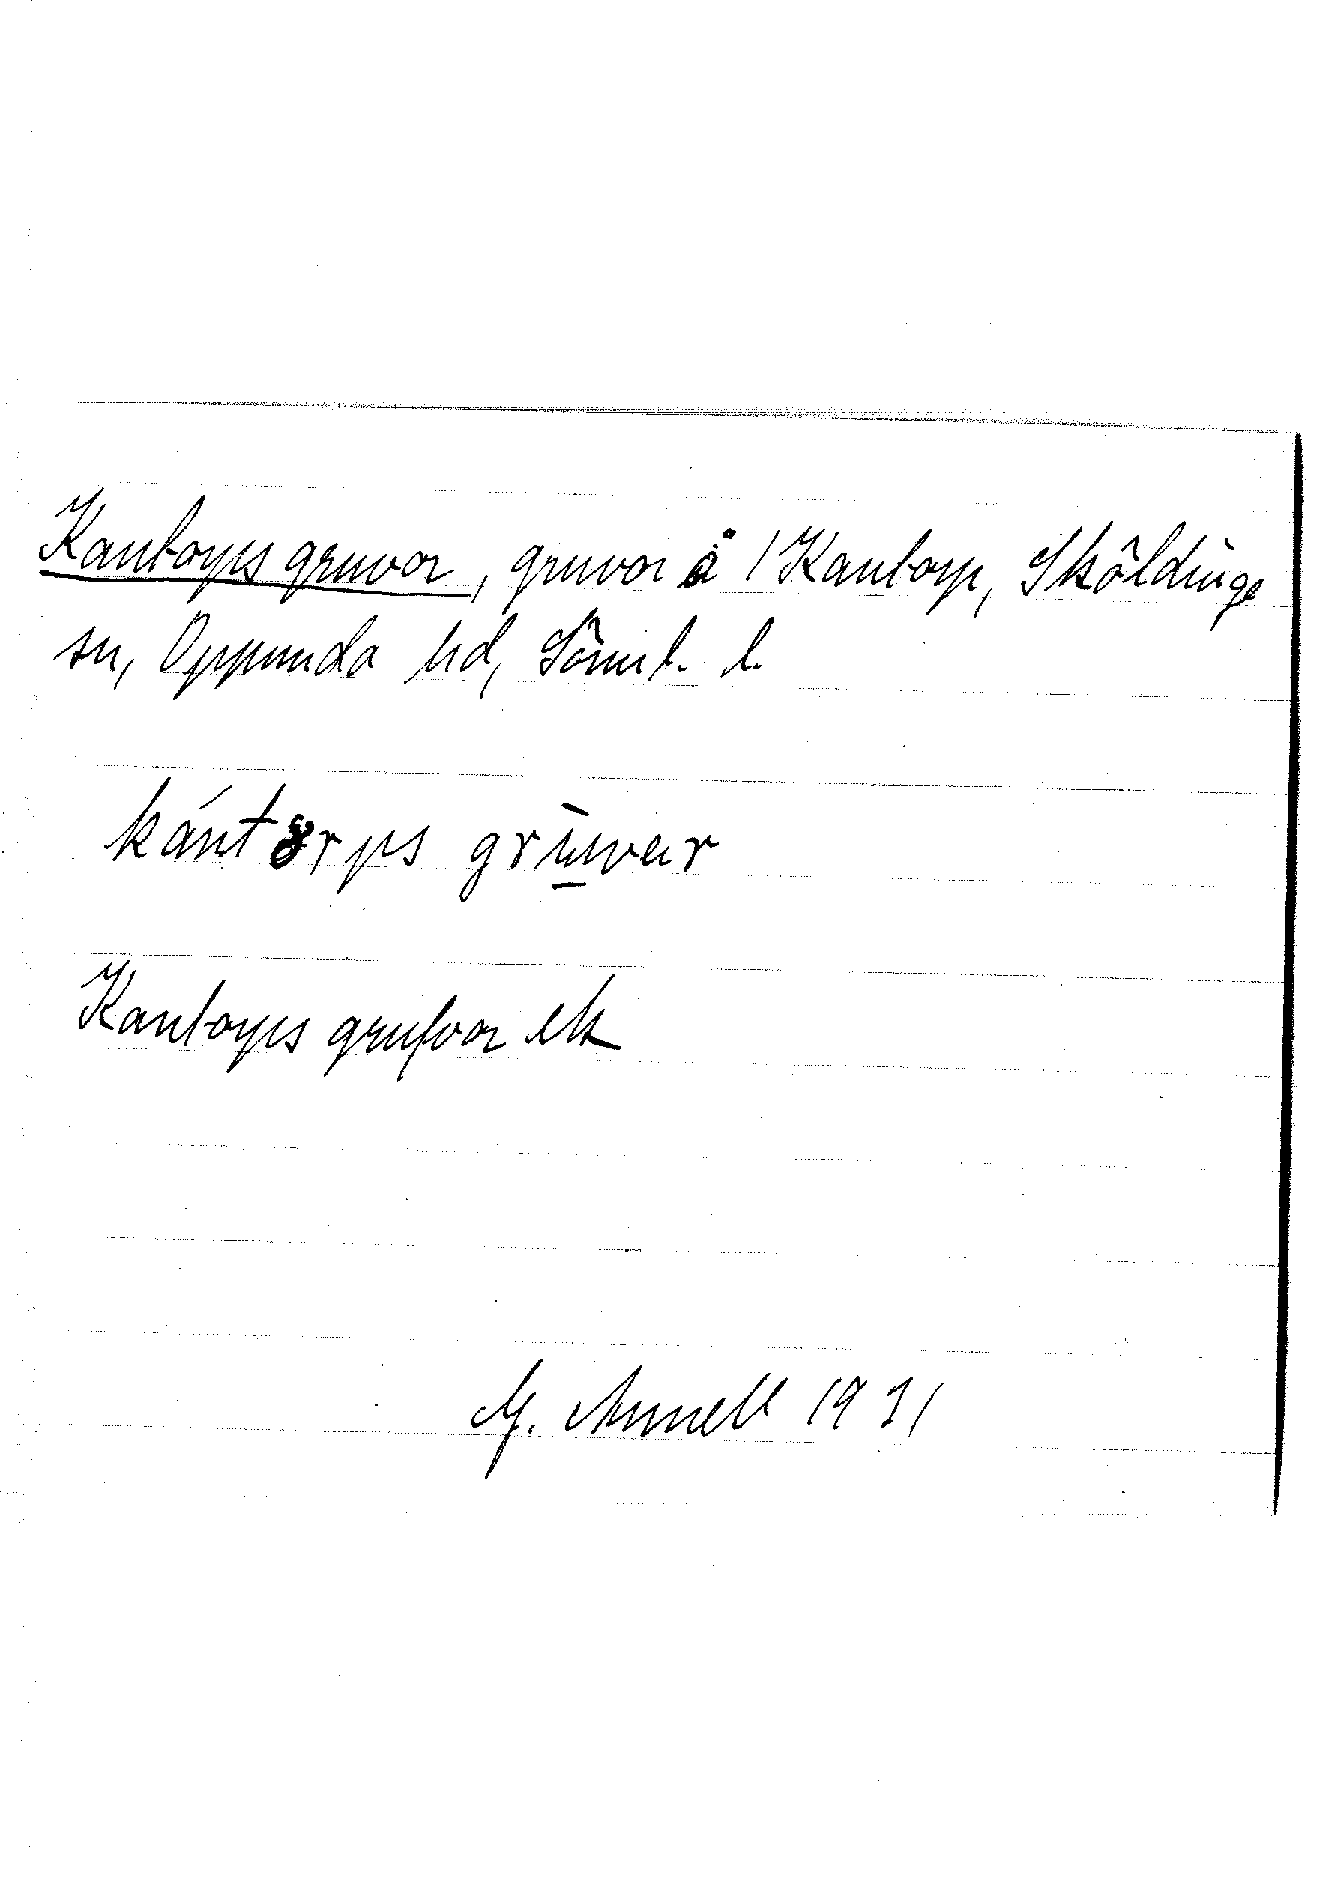 Kantorps gruvor, gruvor å 1 Kantorp, Sköldinge
sn, Oppunda hd, Sörml. l.
kántȣrps grùvar
Kantorps grufvor ek
M. Annell 1931